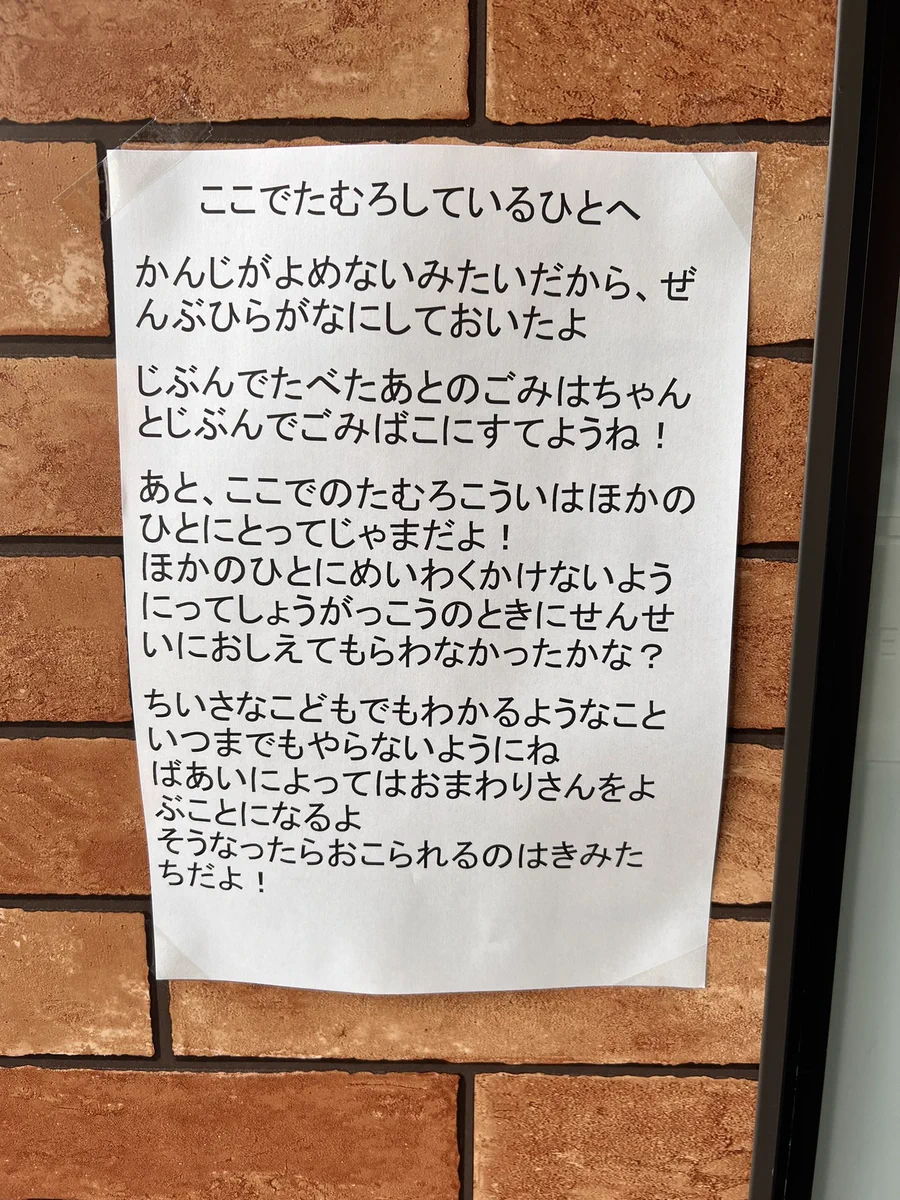 ここでたむろしているひとへ
かんじがよめないみたいだから、ぜ
んぶひらがなにしておいたよ
じぶんでたべたあとのごみはちゃん
とじぶんでごみばこにすてようね！
あと、ここでのたむろこういはほかの
ひとにとってじゃまだよ！
ほかのひとにめいわくかけないよう
にってしょうがっこうのときにせんせ
いにおしえてもらわなかったかな？
ちいさなこどもでもわかるようなこと
いつまでもやらないようにね
ばあいによってはおまわりさんをよ
ぶことになるよ
そうなったらおこられるのはきみた
ちだよ！